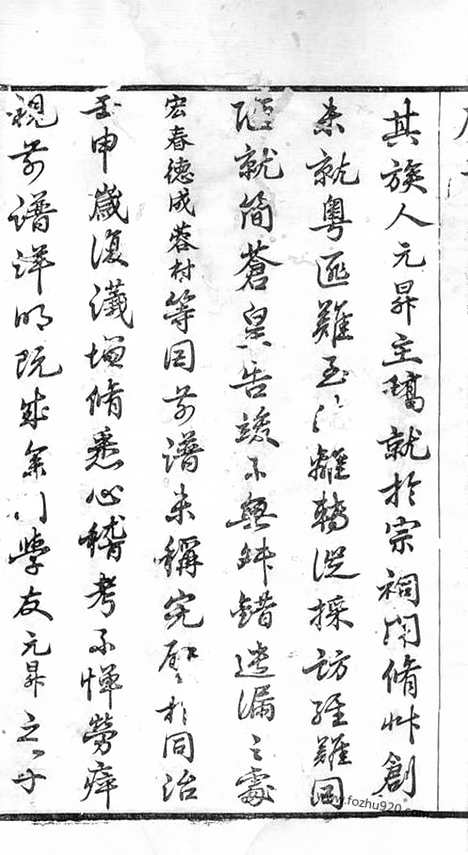 其族人元昇主稿就於宗祠開脩艸創
未就粵匪難至流離轉徙採訪維難因
陋就簡蒼皇告竣不無舛錯遺漏之處
宏春德成蓉村等因前譜未稱完璧於同治
壬申歲復議增脩悉心稽考不憚勞瘁
視前譜詳明既成余門學友元昇之子
www.fozhu920.com